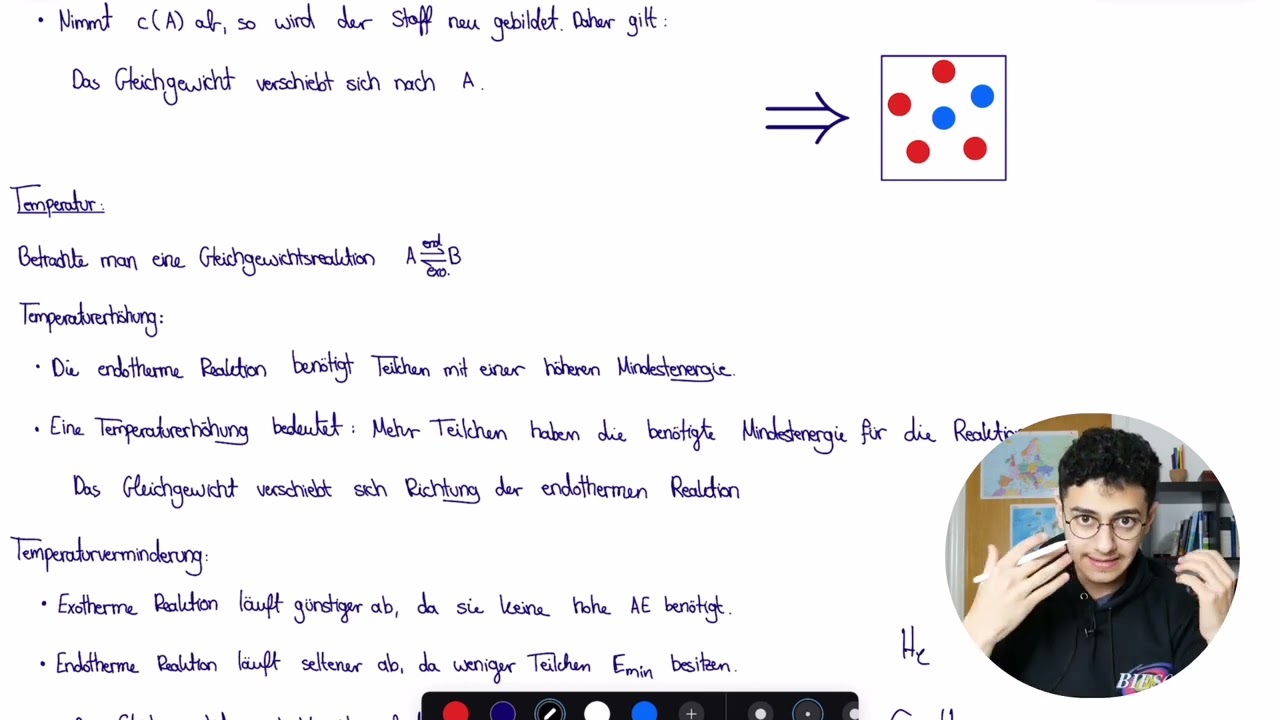 • Nimmt c(A) ab, so wird der Stoff neu gebildet. Daher gilt:
Das Gleichgewicht verschiebt sich nach A.
Temperatur:
Betrachte man eine Gleichgewichtsreaktion A ⇌ B
end
exo.
Temperaturerhöhung:
• Die endotherme Reaktion benötigt Teilchen mit einer höheren Mindestenergie.
• Eine Temperaturerhöhung bedeutet: Mehr Teilchen haben die benötigte Mindestenergie für die
Das Gleichgewicht verschiebt sich Richtung der endothermen Reaktion
Temperaturverminderung:
• Exotherme Reaktion läuft günstiger ab, da sie keine hohe AE benötigt.
• Endotherme Reaktion läuft seltener ab, da weniger Teilchen Emin besitzen.
He